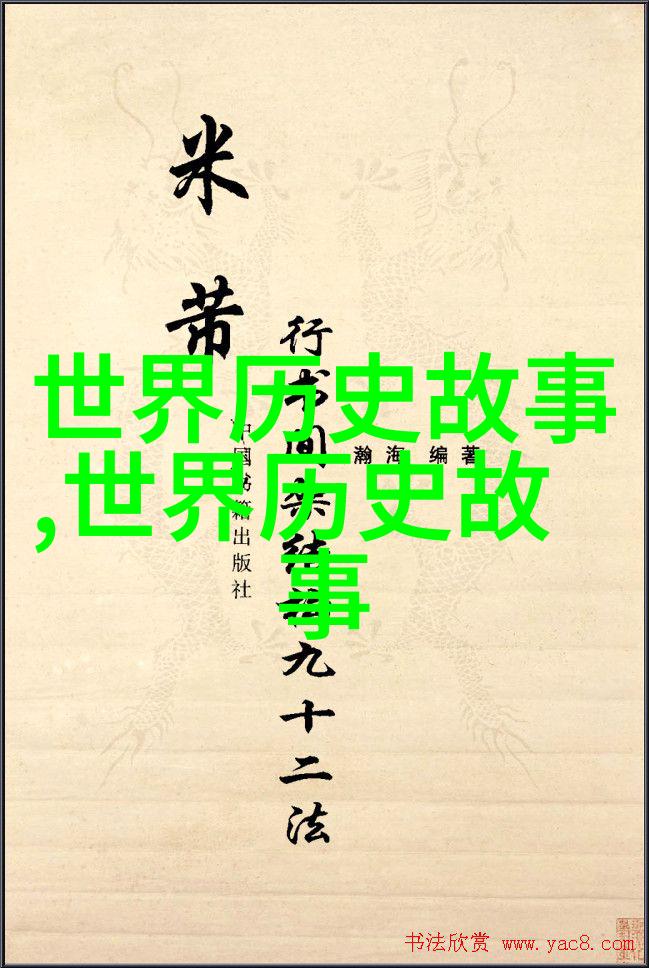 米芾
行书间架结构九十二法
瀚海 编著
中国书籍出版社
世界历史故事
,世界历史故
事
书法欣赏 www.yac8.com